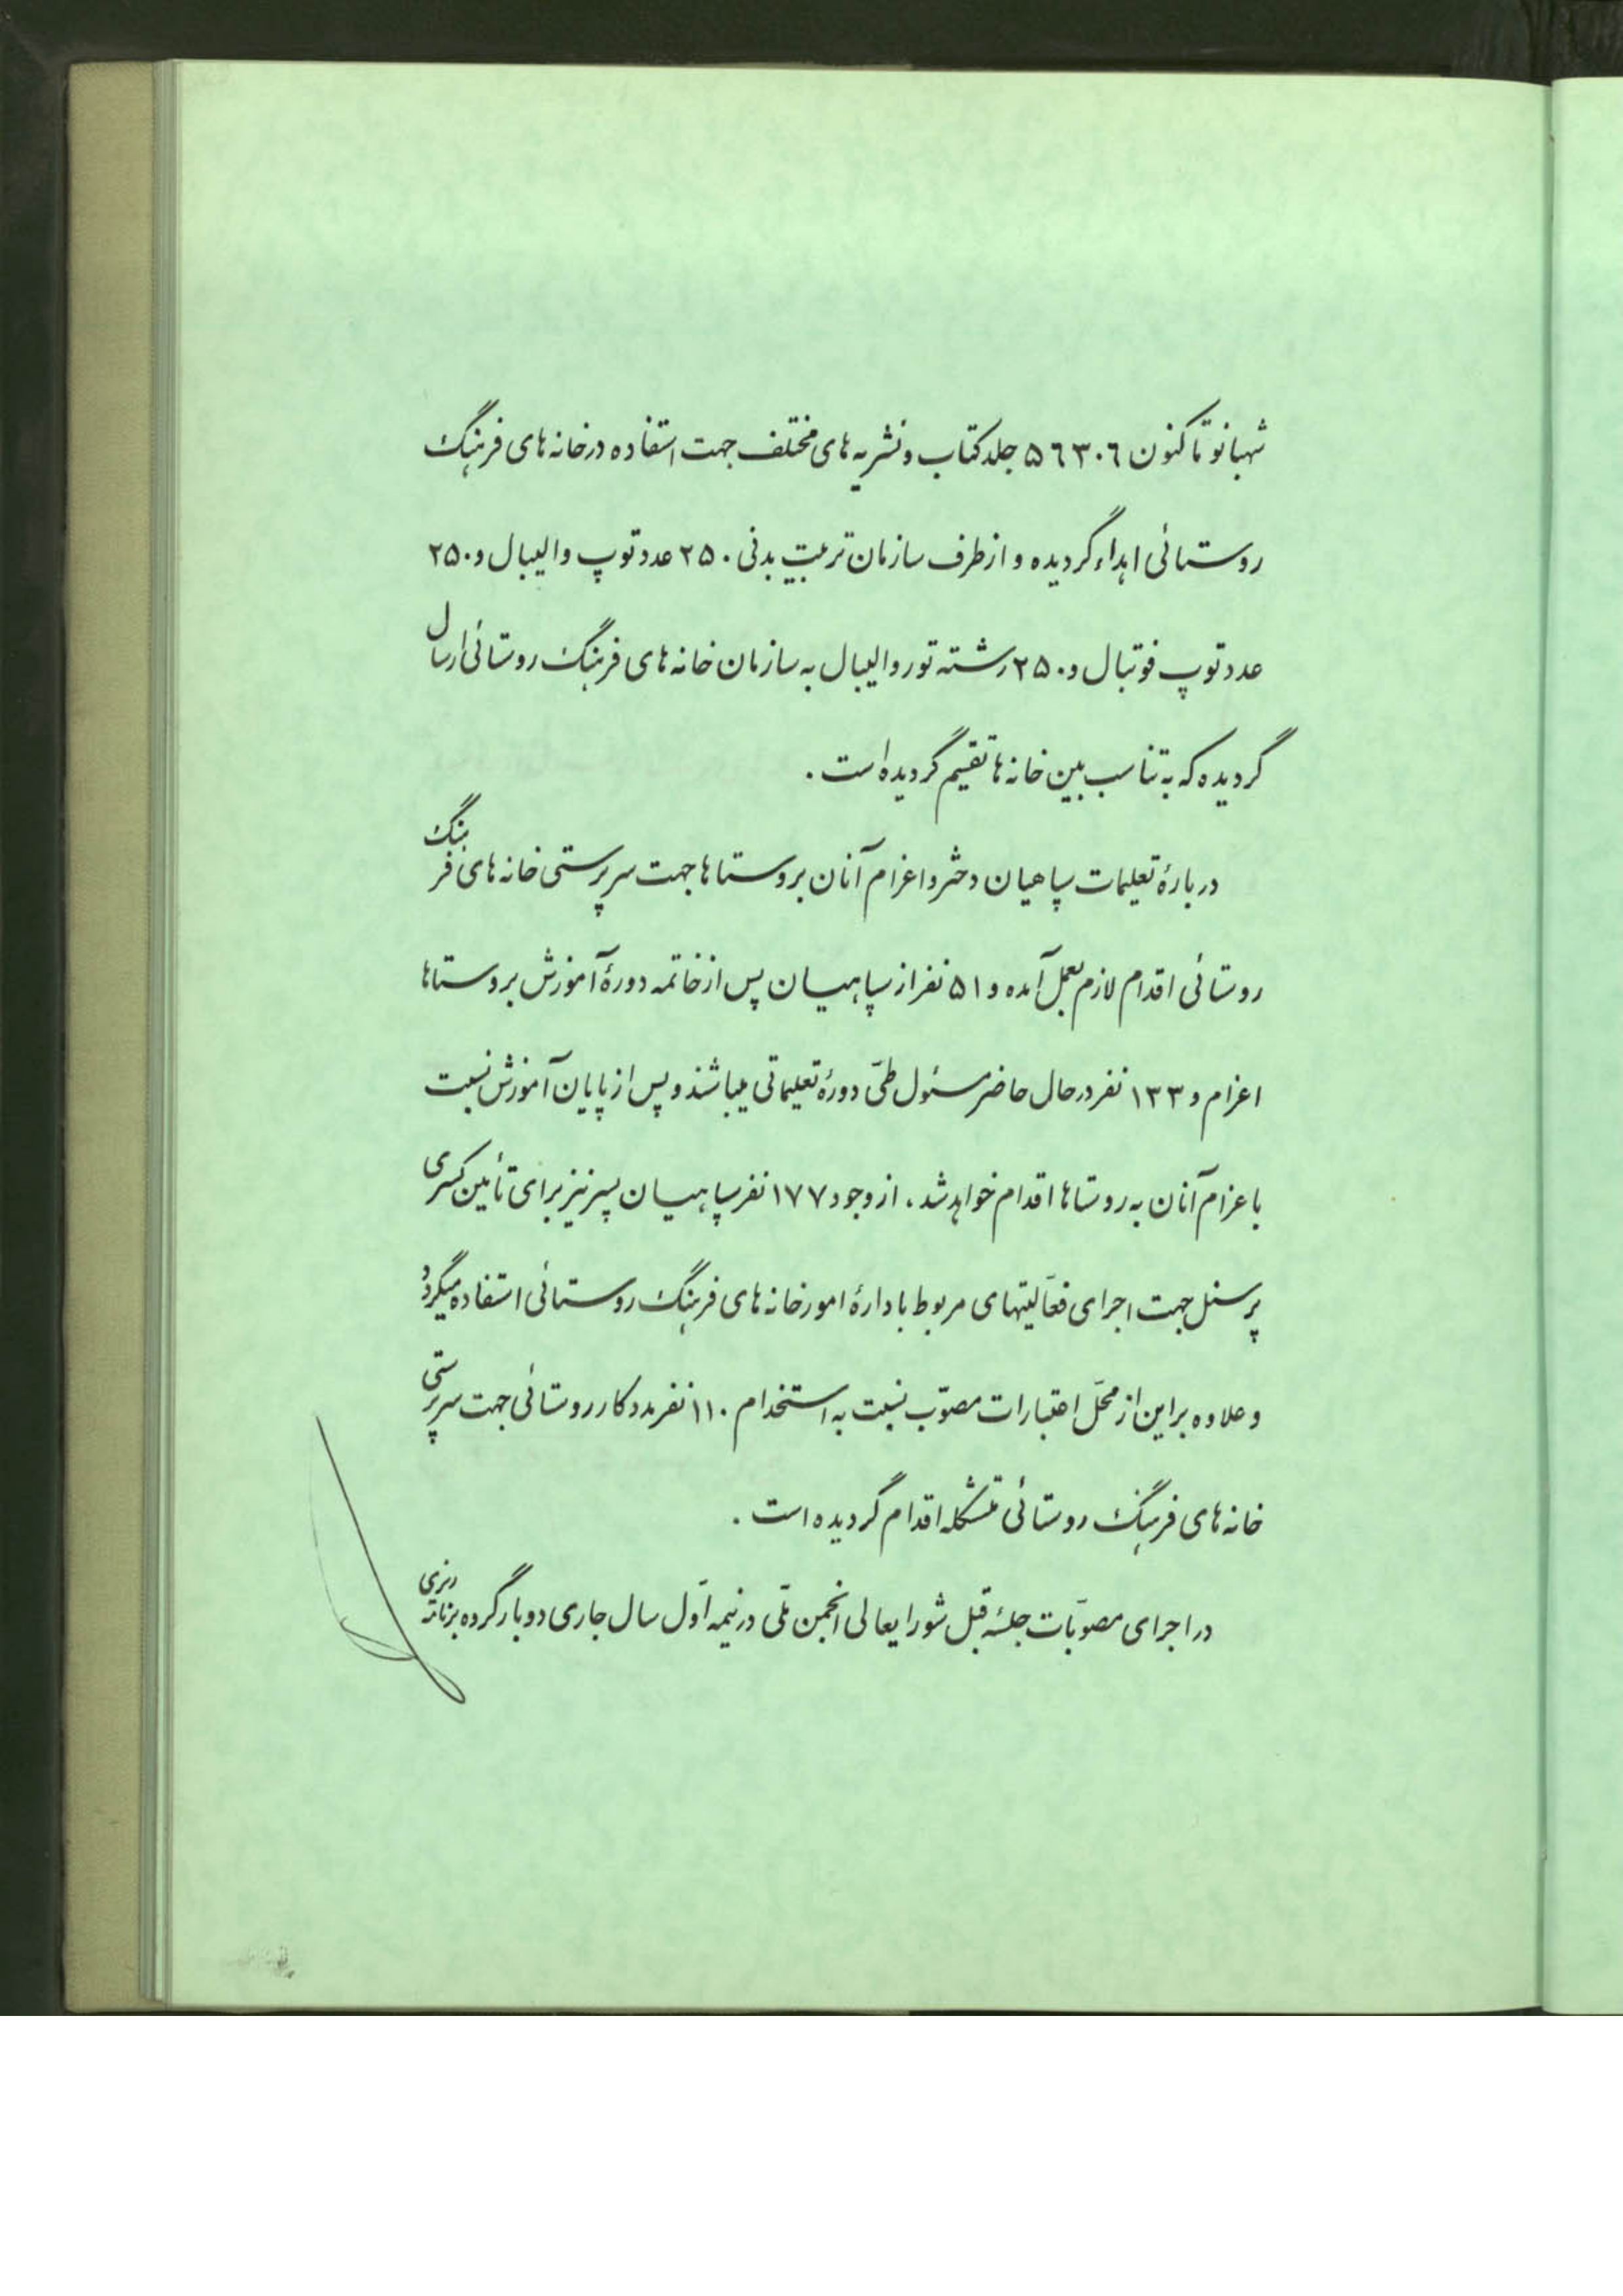 شهبانو تاکنون ۵۶۳۰۶ جلد کتاب و نشریه های مختلف جهت استفاده در خانه های فرهنگ
روستائی اهداء گردیده و از طرف سازمان تربیت بدنی ۲۵۰ عدد توپ والیبال و ۲۵۰
عدد توپ فوتبال و ۲۵۰ رشته تور والیبال به سازمان خانه های فرهنگ روستائی ارسال
گردیده که به تناسب بین خانه ها تقسیم گردیده است .
درباره تعلیمات سپاهیان دختر و اعزام آنان بروستاها جهت سرپرستی خانه های فرهنگ
روستائی اقدام لازم بعمل آمده و ۵۱ نفر از سپاهیان پس از خاتمه دورهٔ آموزش بروستاها
اعزام و ۱۳۳ نفر در حال حاضر مسئول طیّ دورهٔ تعلیماتی میباشند و پس از پایان آموزش نسبت
باعزام آنان به روستاها اقدام خواهد شد ، از وجود ۱۷۷ نفر سپاهیان پسر نیز برای تأمین کسری
پرسنل جهت اجرای فعّالیتهای مربوط بادارهٔ امور خانه های فرهنگ روستائی استفاده میگردد
و علاوه بر این از محلّ اعتبارات مصوّب نسبت به استخدام ۱۱۰ نفر مددکار روستائی جهت سرپرستی
خانه های فرهنگ روستائی متشکله اقدام گردیده است .
در اجرای مصوّبات جلسهٔ قبل شورایعالی انجمن ملّی در نیمه اوّل سال جاری دو بار گروه برنامه ریزی